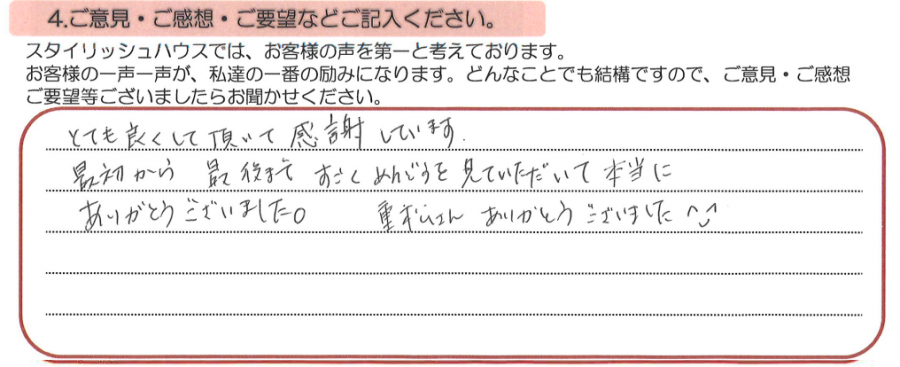 4.ご意見・ご感想・ご要望などご記入ください。
スタイリッシュハウスでは、お客様の声を第一と考えております。
お客様の一声一声が、私達の一番の励みになります。どんなことでも結構ですので、ご意見・ご感想
ご要望等ございましたらお聞かせください。
とても良くして頂いて感謝しています.
最初から 最後まで すごくめんどうを見ていただいて本当に
ありがとうございました。 重松さん ありがとうございました ^^